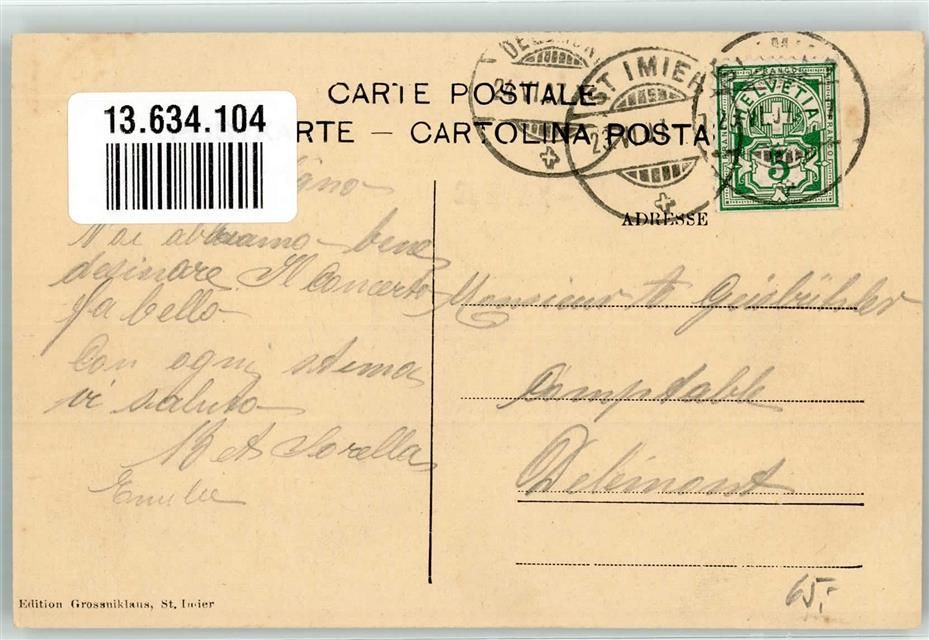 CARTE POSTALE
ARTE — CARTOLINA POSTA
13.634.104
ST IMIER
HELVETIA
FRANCO
5
ADRESSE
Noi abbiamo bene
desinare Il Concerto
fa bello.
Con ogni stima
vi saluto
Sorella
Emilie
Monsieur A Geisbühler
Comptable
Delémont
Edition Grossniklaus, St. Imier
65,-